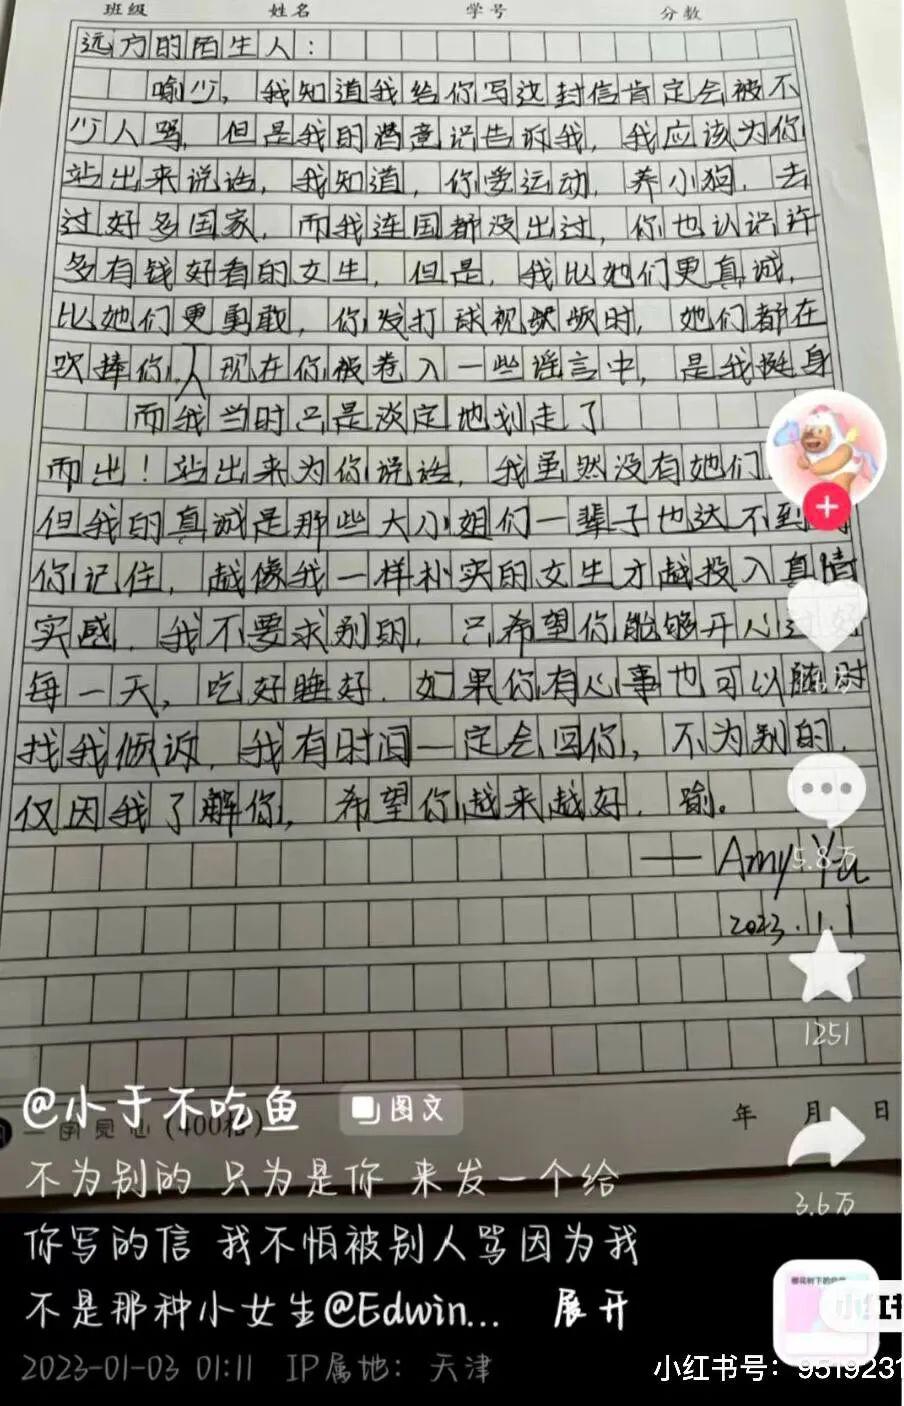 班级 姓名 学号 分数
远方的陌生人：
喻少，我知道我给你写这封信肯定会被不
少人骂，但是我的潜意识告诉我，我应该为你
站出来说话，我知道，你爱运动，养小狗，去
过好多国家，而我连国都没出过，你也认识许
多有钱好看的女生，但是，我比她们更真诚，
比她们更勇敢，你发打球视频时，她们都在
吹捧你，现在你被卷入一些谣言中，是我挺身
而我当时只是淡定地划走了
而出！站出来为你说话，我虽然没有她们
但我的真诚是那些大小姐们一辈子也达不到的
你记住，越像我一样朴实的女生才越投入真情
实感，我不要求别的，只希望你能够开心过好
每一天，吃好睡好，如果你有心事也可以随时
找我倾诉，我有时间一定会回你，不为别的，
仅因我了解你，希望你越来越好，喻。
——Amy Yu
2023.1.1
5.8万
1251
3.6万
年 月 日
(400格)
@小于不吃鱼 图文
不为别的 只为是你 来发一个给
你写的信 我不怕被别人骂因为我
不是那种小女生@Edwin... 展开
2023-01-03 01:11 IP属地：天津
小红书号：9519231